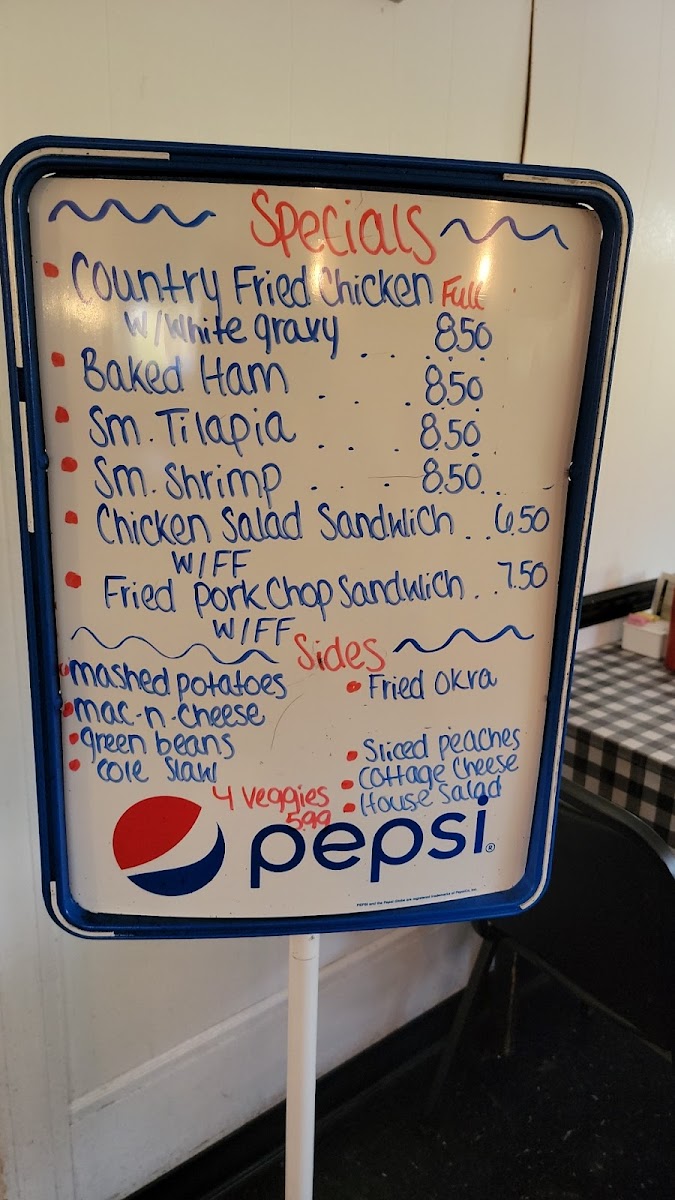 Specials
• Country Fried Chicken Full
W/White gravy . . . . 8.50
• Baked Ham . . . 8.50
• Sm. Tilapia . . . 8.50
• Sm. Shrimp . . . 8.50
• Chicken Salad Sandwich . . 6.50
W/FF
• Fried Pork Chop Sandwich . . 7.50
W/FF
Sides
• mashed potatoes
• mac-n-cheese
• green beans
• cole slaw
• Fried Okra
• Sliced peaches
• Cottage Cheese
• House Salad
4 Veggies
5.99
pepsi®